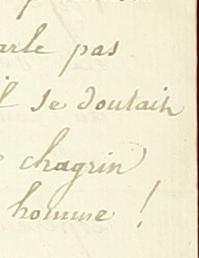 arle pas
il se doutait
chagrin
homme !